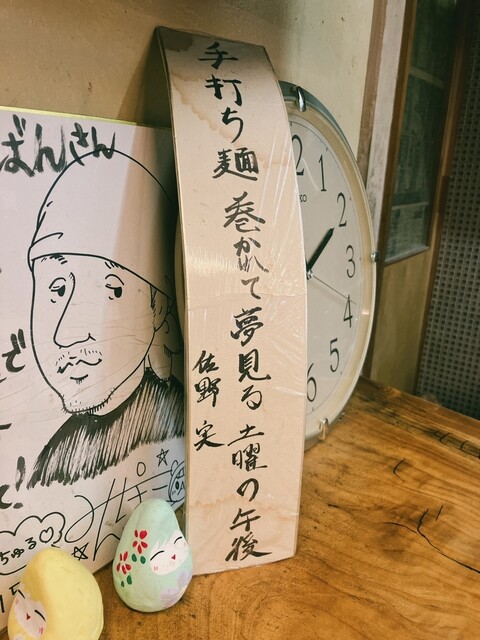 ばんさん
手打ち麺 巻かれて夢見る 土曜の午後
佐野 実
で
て!
ちゅる
12
1
2
3
4
5
6